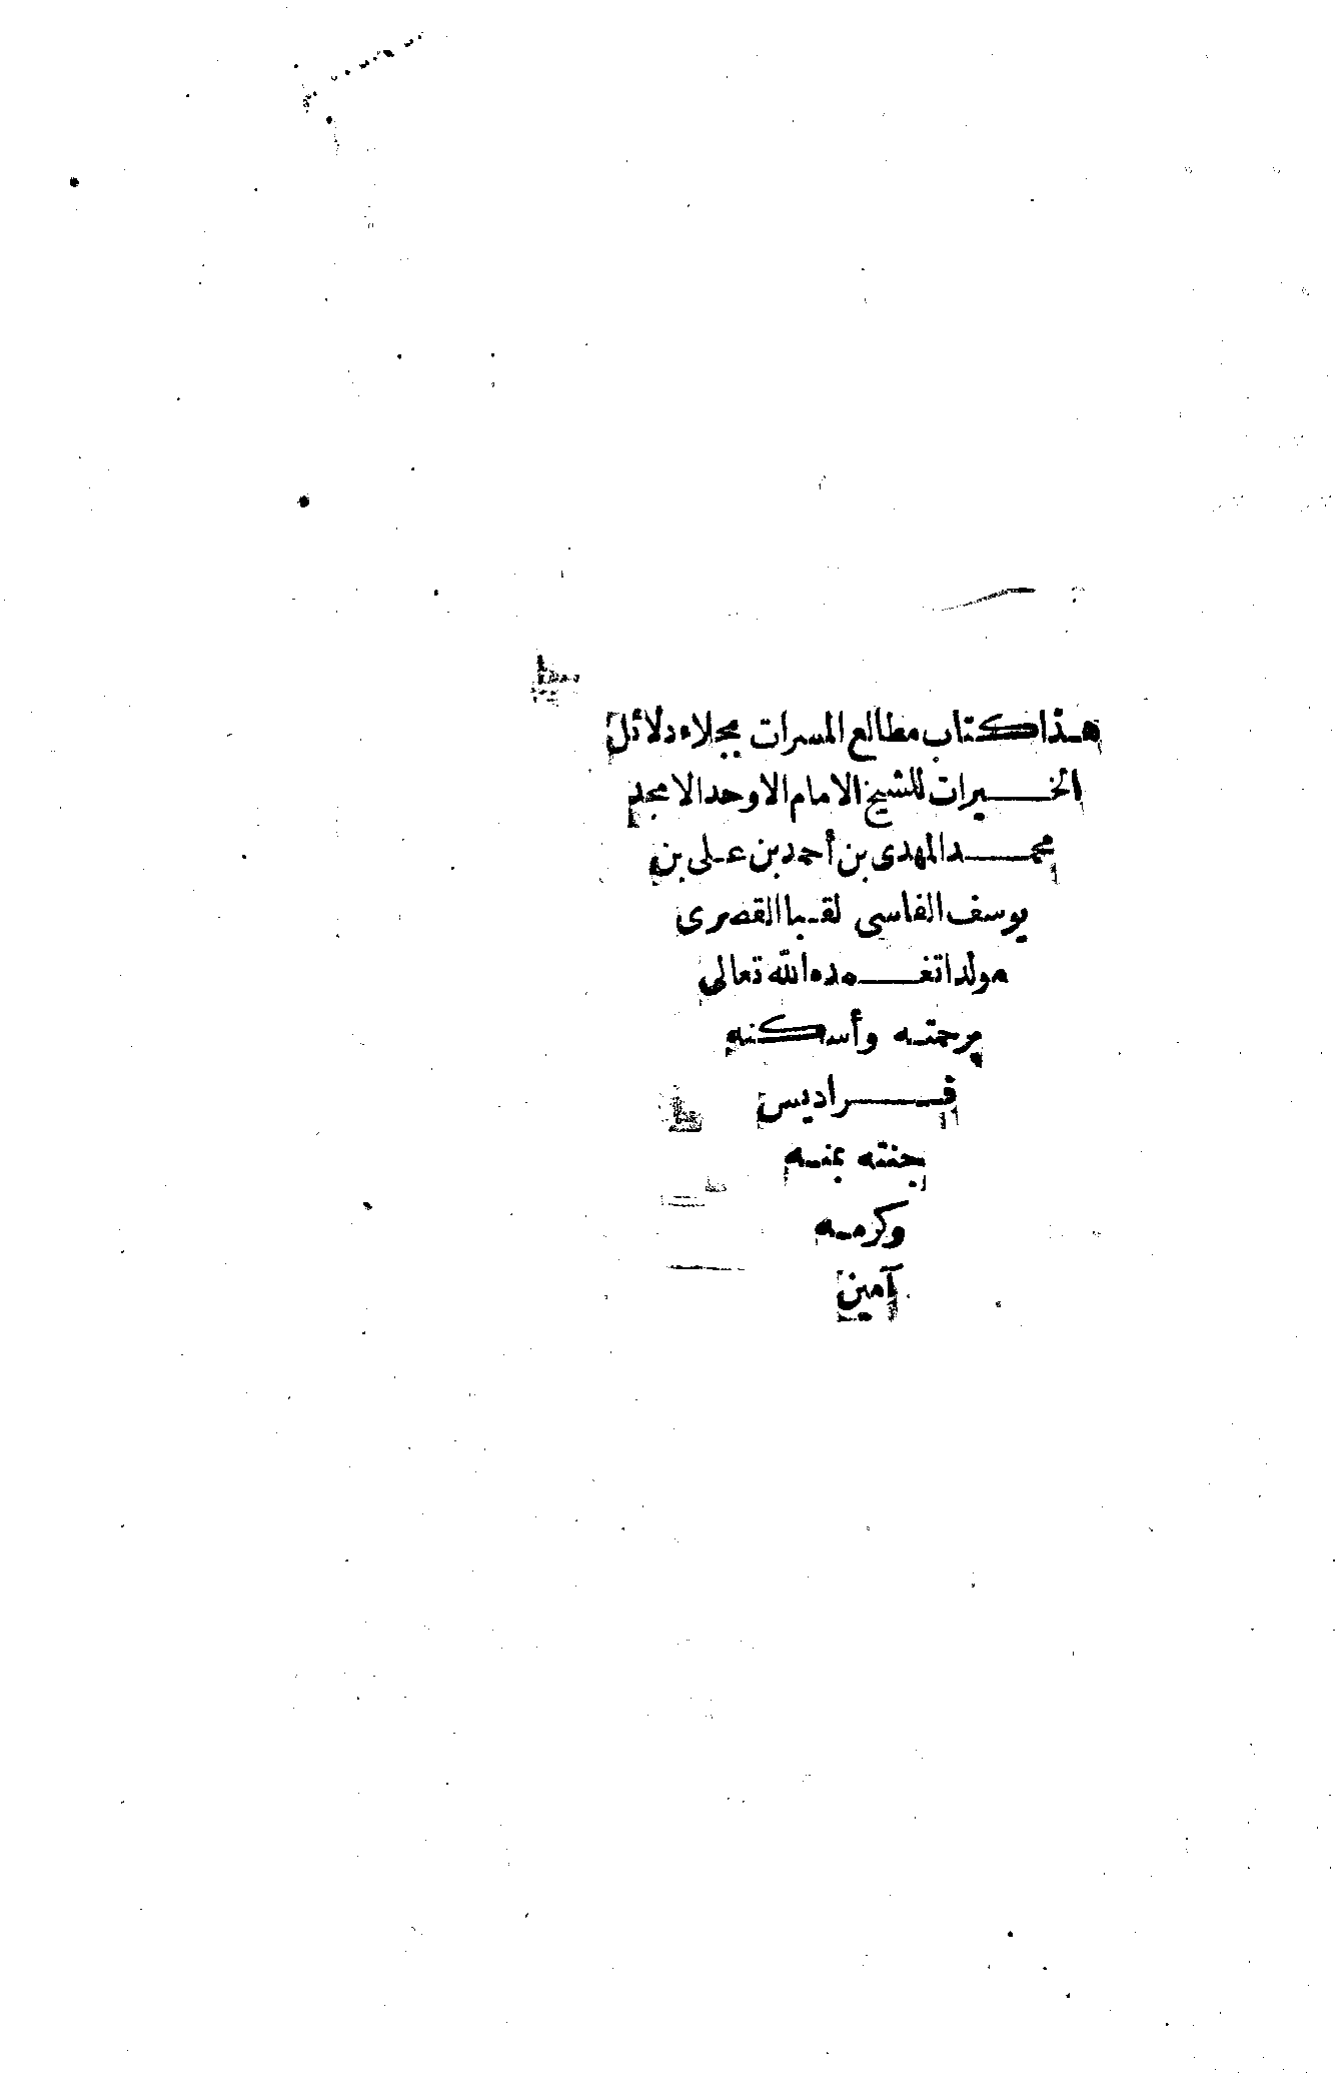 هذا كتاب مطالع المسرات بجلاء دلائل
الخيرات للشيخ الامام الاوحد الامجد
محمد المهدى بن أحمد بن على بن
يوسف الفاسى لقبا القصرى
مولدا تغمده الله تعالى
برحمته وأسكنه
فراديس
جنته بمنه
وكرمه
آمين